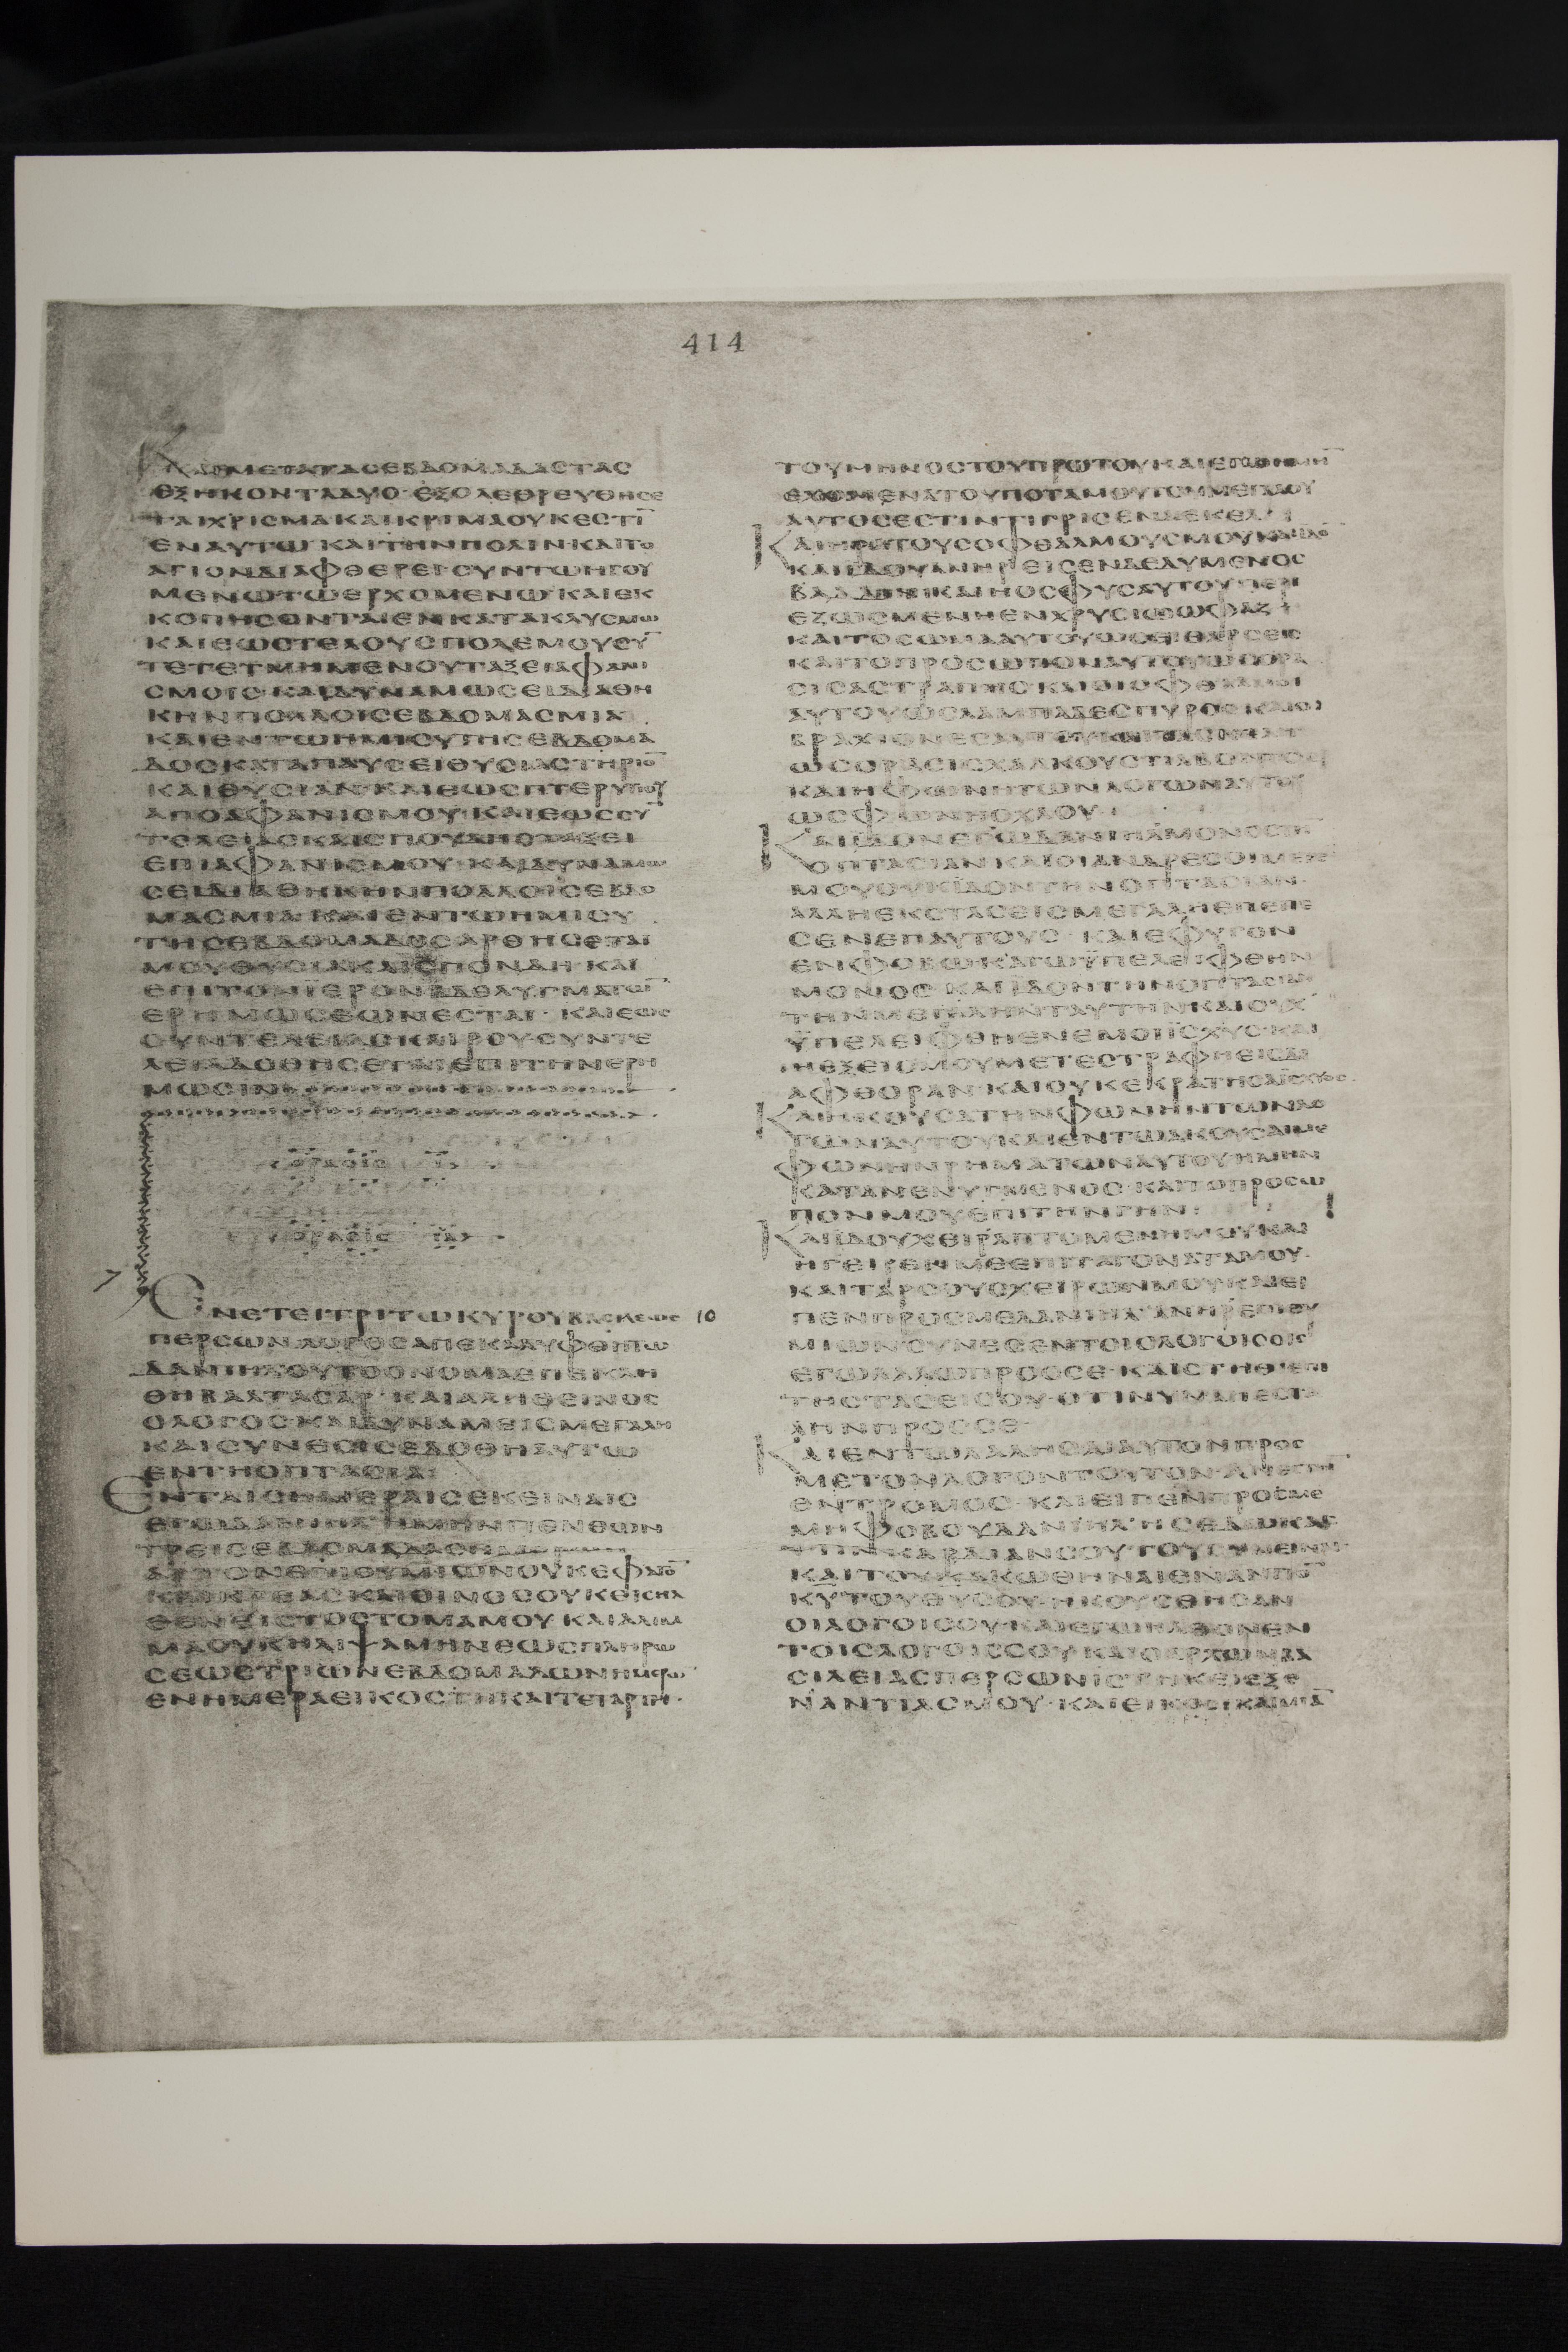 414
ΚΑΙΜΕΤΑΤΑΣΕΒΔΟΜΑΔΑΣΤΑΣ
ΕΞΗΚΟΝΤΑΔΥΟ·ΕΞΟΛΕΘΡΕΥΘΗΣΕ
ΤΑΙΧΡΙΣΜΑΚΑΙΚΡΙΜΑΟΥΚΕΣΤΙ̅
ΕΝΑΥΤΩ·ΚΑΙΤΗΝΠΟΛΙΝ·ΚΑΙΤΟ
ΑΓΙΟΝΔΙΑΦΘΕΡΕΙΣΥΝΤΩΗΓΟΥ
ΜΕΝΩΤΩΕΡΧΟΜΕΝΩ·ΚΑΙΕΚ
ΚΟΠΗΣΟΝΤΑΙΕΝΚΑΤΑΚΛΥΣΜΩ
ΚΑΙΕΩΣΤΕΛΟΥΣΠΟΛΕΜΟΥΣΥ̅
ΤΕΤΕΤΜΗΜΕΝΟΥΤΑΞΕΙΑΦΑΝΙ
ΣΜΟΙΣ·ΚΑΙΔΥΝΑΜΩΣΕΙΔΙΑΘΗ
ΚΗΝΠΟΛΛΟΙΣΕΒΔΟΜΑΣΜΙΑ
ΚΑΙΕΝΤΩΗΜΙΣΥΤΗΣΕΒΔΟΜΑ
ΔΟΣΚΑΤΑΠΑΥΣΕΙΘΥΣΙΑΣΤΗΡΙΟ̅
ΚΑΙΘΥΣΙΑΝ·ΚΑΙΕΩΣΠΤΕΡΥΓΙΟΥ
ΑΠΟΑΦΑΝΙΣΜΟΥ·ΚΑΙΕΩΣΣΥ̅
ΤΕΛΕΙΑΣΚΑΙΣΠΟΥΔΗΣΤΑΞΕΙ
ΕΠΙΑΦΑΝΙΣΜΟΥ·ΚΑΙΔΥΝΑΜΩ
ΣΕΙΔΙΑΘΗΚΗΝΠΟΛΛΟΙΣΕΒΔΟ
ΜΑΣΜΙΑ·ΚΑΙΕΝΤΩΗΜΙΣΥ
ΤΗΣΕΒΔΟΜΑΔΟΣΑΡΘΗΣΕΤΑΙ
ΜΟΥΘΥΣΙΑΚΑΙΣΠΟΝΔΗ·ΚΑΙ
ΕΠΙΤΟΪΕΡΟΝΒΔΕΛΥΓΜΑΤΩ̅
ΕΡΗΜΩΣΕΩΝΕΣΤΑΙ·ΚΑΙΕΩΣ
ΣΥΝΤΕΛΕΙΑΣΚΑΙΡΟΥ·ΣΥΝΤΕ
ΛΕΙΑΔΟΘΗΣΕΤΑΙΕΠΙΤΗΝΕΡΗ
ΜΩΣΙΝ
ΕΝΕΤΕΙΤΡΙΤΩΚΥΡΟΥΒΑΣΙΛΕΩΣ 10
ΠΕΡΣΩΝΛΟΓΟΣΑΠΕΚΑΛΥΦΘΗΤΩ
ΔΑΝΙΗΛΟΥΤΟΟΝΟΜΑΕΠΕΚΛΗ
ΘΗΒΑΛΤΑΣΑΡ·ΚΑΙΑΛΗΘΕΙΝΟΣ
ΟΛΟΓΟΣ·ΚΑΙΔΥΝΑΜΕΙΣΜΕΓΑΛΗ
ΚΑΙΣΥΝΕΣΙΣΕΔΟΘΗΑΥΤΩ
ΕΝΤΗΟΠΤΑΣΙΑ
ΕΝΤΑΙΣΗΜΕΡΑΙΣΕΚΕΙΝΑΙΣ
ΕΓΩΔΑΝΙΗΛ·ΗΜΗΝΠΕΝΘΩΝ
ΤΡΕΙΣΕΒΔΟΜΑΔΑΣ
ΑΡΤΟΝΕΠΙΘΥΜΙΩΝΟΥΚΕΦΑΓΟ̅
ΚΑΙΚΡΕΑΣΚΑΙΟΙΝΟΣΟΥΚΕΙΣΗΛ
ΘΕΝΕΙΣΤΟΣΤΟΜΑΜΟΥΚΑΙΑΛΙΜ
ΜΑΟΥΚΗΛΙΨΑΜΗΝΕΩΣΠΛΗΡΩ
ΣΕΩΣΤΡΙΩΝΕΒΔΟΜΑΔΩΝΗΜΕΡΩ̅
ΕΝΗΜΕΡΑΕΙΚΟΣΤΗΚΑΙΤΕΤΑΡΤΗ·
ΤΟΥΜΗΝΟΣΤΟΥΠΡΩΤΟΥΚΑΙΕΓΩΗΜΗ̅
ΕΧΟΜΕΝΑΤΟΥΠΟΤΑΜΟΥΤΟΥΜΕΓΑΛΟΥ
ΑΥΤΟΣΕΣΤΙΝΤΙΓΡΙΣΕΝΔΕΚΕΛ
ΚΑΙΗΡΑΤΟΥΣΟΦΘΑΛΜΟΥΣΜΟΥΚΑΙΙΔΟ̅
ΚΑΙΙΔΟΥΑΝΗΡΕΙΣΕΝΔΕΔΥΜΕΝΟΣ
ΒΑΔΔΙΝ·ΚΑΙΗΟΣΦΥΣΑΥΤΟΥΠΕΡΙ
ΕΖΩΣΜΕΝΗΕΝΧΡΥΣΙΩΩΦΑΖ
ΚΑΙΤΟΣΩΜΑΑΥΤΟΥΩΣΕΙΘΑΡΣΕΙΣ
ΚΑΙΤΟΠΡΟΣΩΠΟΝΑΥΤΟΥΩΣΟΡΑ
ΣΙΣΑΣΤΡΑΠΗΣ·ΚΑΙΟΙΟΦΘΑΛΜΟΙ
ΑΥΤΟΥΩΣΛΑΜΠΑΔΕΣΠΥΡΟΣΚΑΙΟΙ
ΒΡΑΧΙΟΝΕΣΑΥΤΟΥ
ΩΣΟΡΑΣΙΣΧΑΛΚΟΥΣΤΙΛΒΟΝΤΟΣ
ΚΑΙΗΦΩΝΗΤΩΝΛΟΓΩΝΑΥΤΟΥ
ΩΣΦΩΝΗΟΧΛΟΥ·
ΚΑΙΙΔΟΝΕΓΩΔΑΝΙΗΛΜΟΝΟΣΤΗ̅
ΟΠΤΑΣΙΑΝ·ΚΑΙΟΙΑΝΔΡΕΣΟΙΜΕΤ
ΜΟΥΟΥΚΪΔΟΝΤΗΝΟΠΤΑΣΙΑΝ·
ΑΛΛΗΕΚΣΤΑΣΕΙΣΜΕΓΑΛΗΕΠΕΠΕ
ΣΕΝΕΠΑΥΤΟΥΣ·ΚΑΙΕΦΥΓΟΝ
ΕΝΦΟΒΩ·ΚΑΓΩΫΠΕΛΕΙΦΘΗΝ
ΜΟΝΟΣ·ΚΑΙΙΔΟΝΤΗΝΟΠΤΑΣΙΑΝ
ΤΗΝΜΕΓΑΛΗΝΤΑΥΤΗΝΚΑΙΟΥΧ
ΫΠΕΛΕΙΦΘΗΕΝΕΜΟΙΪΣΧΥΣ·ΚΑΙ
ΗΕΞΕΙΣΜΟΥΜΕΤΕΣΤΡΑΦΗΕΙΣΔΙ
ΑΦΘΟΡΑΝ·ΚΑΙΟΥΚΕΚΡΑΤΗΣΑΪΣΧΥΟΣ·
ΚΑΙΗΚΟΥΣΑΤΗΝΦΩΝΗΝΤΩΝΛΟ
ΓΩΝΑΥΤΟΥΚΑΙΕΝΤΩΑΚΟΥΣΑΙΜΕ
ΦΩΝΗΝΡΗΜΑΤΩΝΑΥΤΟΥΗΜΗΝ
ΚΑΤΑΝΕΝΥΓΜΕΝΟΣ·ΚΑΙΤΟΠΡΟΣΩ
ΠΟΝΜΟΥΕΠΙΤΗΝΓΗΝ·
ΚΑΙΙΔΟΥΧΕΙΡΑΠΤΟΜΕΝΗΜΟΥΚΑΙ
ΗΓΕΙΡΕΝΜΕΕΠΙΤΑΓΟΝΑΤΑΜΟΥ·
ΚΑΙΤΑΡΣΟΥΣΧΕΙΡΩΝΜΟΥΚΑΙΕΙ
ΠΕΝΠΡΟΣΜΕΔΑΝΙΗΛ·ΑΝΗΡΕΠΙΘΥ
ΜΙΩΝΣΥΝΕΣΕΝΤΟΙΣΛΟΓΟΙΣΟΙΣ
ΕΓΩΛΑΛΩΠΡΟΣΣΕ·ΚΑΙΣΤΗΘΙΕΠΙ
ΤΗΣΤΑΣΕΙΣΟΥ·ΟΤΙΝΥΝΑΠΕΣΤΑ
ΛΗΝΠΡΟΣΣΕ·
ΚΑΙΕΝΤΩΛΑΛΗΣΑΙΑΥΤΟΝΠΡΟΣ
ΜΕΤΟΝΛΟΓΟΝΤΟΥΤΟΝ·ΑΝΕΣΤΗ̅
ΕΝΤΡΟΜΟΣ·ΚΑΙΕΙΠΕΝΠΡΟΣΜΕ
ΜΗΦΟΒΟΥΔΑΝΙΗΛ·
ΤΗΝΚΑΡΔΙΑΝΣΟΥΤΟΥΣΥΝΙΕΝΑΙ
ΚΑΙΤΟΥΚΑΚΩΘΗΝΑΙΕΝΑΝΤΙΟ̅
ΚΥ̅ΤΟΥΘΥ̅ΣΟΥ·ΗΚΟΥΣΘΗΣΑΝ
ΟΙΛΟΓΟΙΣΟΥ·ΚΑΙΕΓΩΗΛΘΟΝΕΝ
ΤΟΙΣΛΟΓΟΙΣΣΟΥ·ΚΑΙΟΑΡΧΩΝΒΑ
ΣΙΛΕΙΑΣΠΕΡΣΩΝΙΣΤΗΚΕΙΕΞΕ
ΝΑΝΤΙΑΣΜΟΥ·ΚΑΙΕΙΚΟΣΙΚΑΙΜΙΑ̅